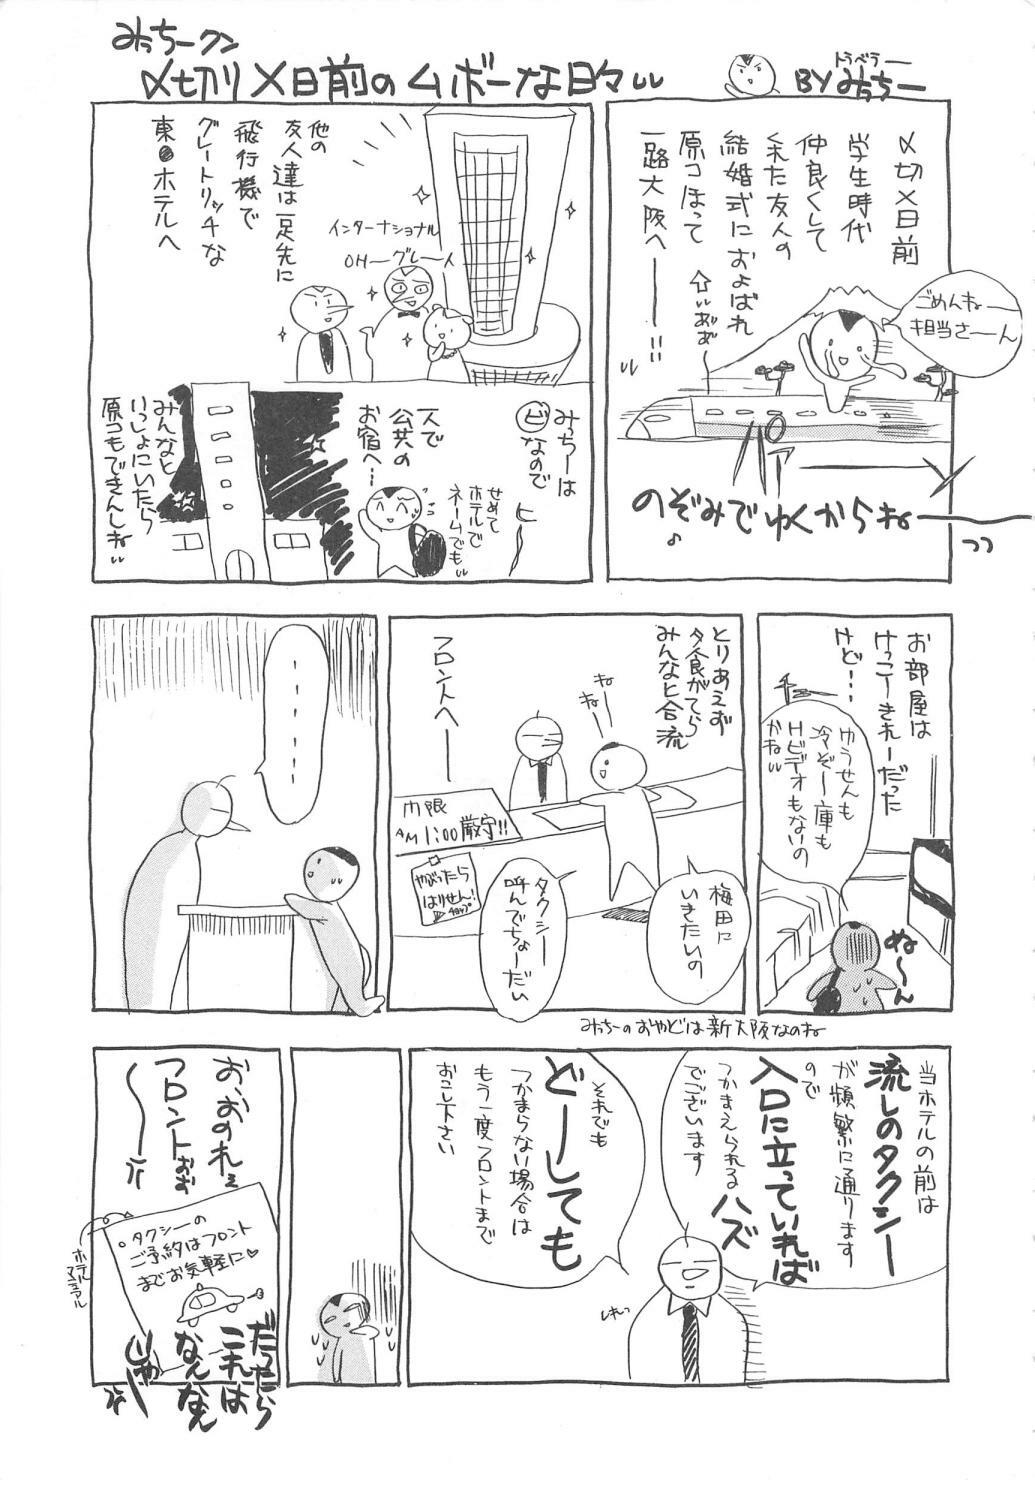 みっちークン
〆切り×日前のムボーな日々
トラベラー
BYみっちー
〆切×日前
学生時代
仲良くして
くれた友人の
結婚式におよばれ
原コほって
一路大阪へ———!!
ごめんねー
担当さーん
のぞみでゆくからねー
♪
他の
友人達は一足先に
飛行機で
グレートリッチな
東●ホテルへ
インターナショナル
OHーグレート
みっちーは
ビなので
一人で
公共の
お宿へ…
せめて
ホテルで
ネームでも
みんなと
いっしょにいたら
原コもできんしね
お部屋は
けっこーきれーだった
けど…
ゆうせんも
冷ぞー庫も
Hビデオもないの
かね
ぬ〜ん
とりあえず
夕食がてら
みんなと合流
フロントへ——
ねー
ねー
門限
AM1:00厳守!!
やぶったら
はりせん!
チョップ
梅田に
いきたいの
タクシー
呼んでちょーだい
・・・・・・・・
みっちーのおやどは新大阪なのね
当ホテルの前は
流しのタクシー
が頻繁に通ります
ので
入口に立っていれば
つかまえられるハズ
でございます
それでも
どーしても
つかまらない場合は
もう一度フロントまで
おこし下さい
しれっ
お、おのれぇ
フロントぉぉ
〜〜
。タクシーの
ご予約はフロント
までお気軽に♡
ホテル
マニュアル
だったら
これは
なんなん
じゃー